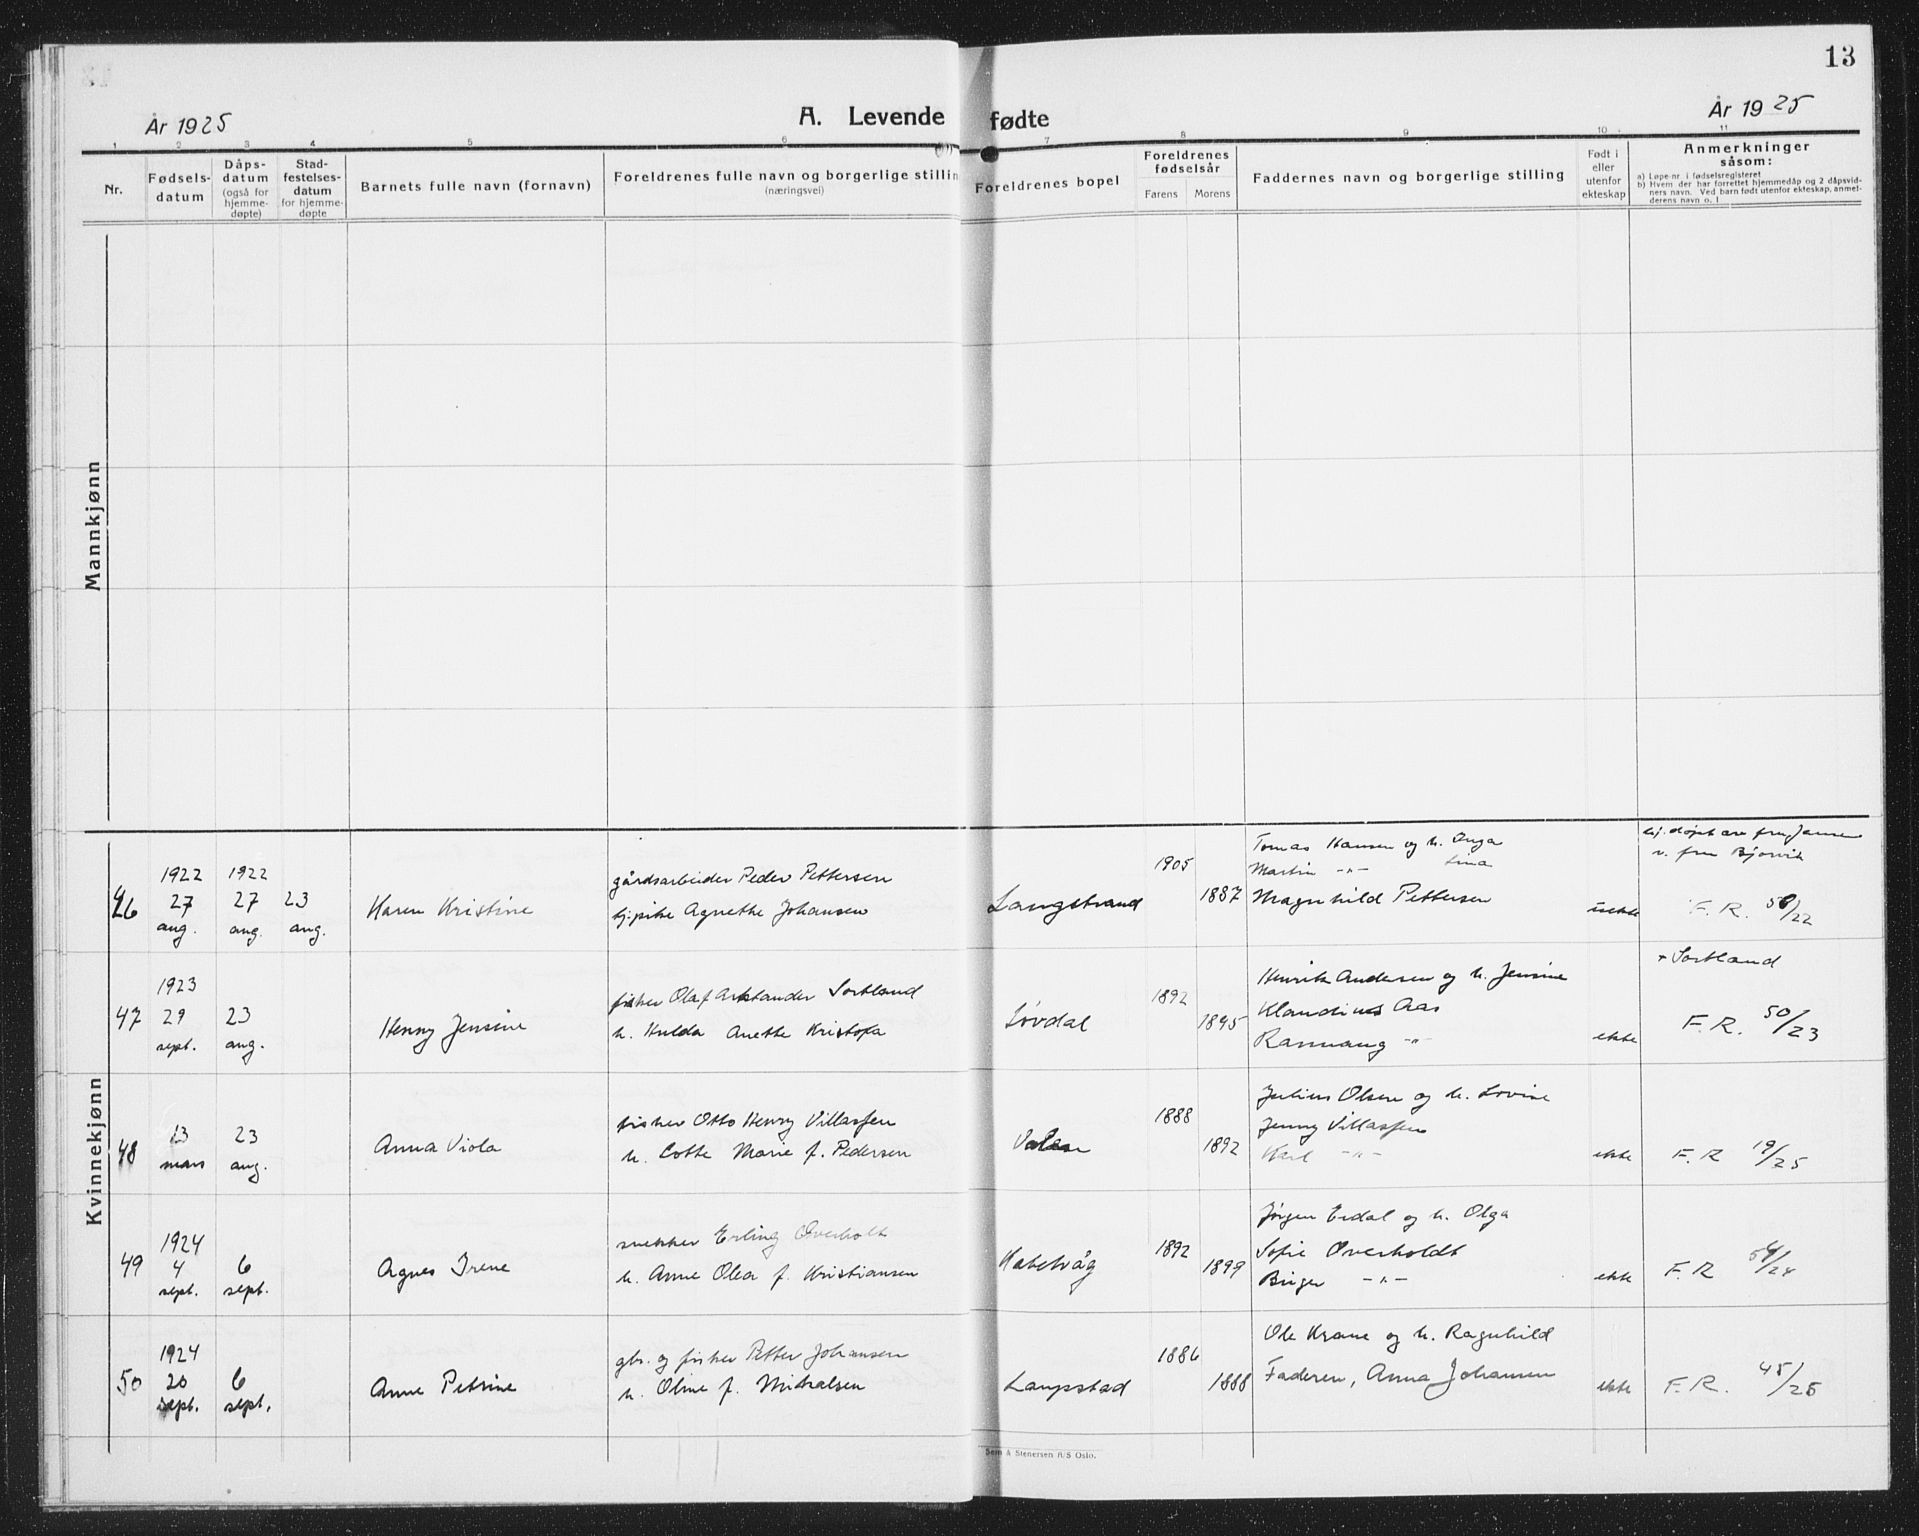 13
År 1925
A. Levende fødte
År 1925
1 2 3 4 5 6 7 8 9 10 11
Nr.
Fødselsdatum
Dåpsdatum (også for hjemmedøpte)
Stadfestelsesdatum for hjemmedøpte
Barnets fulle navn (fornavn)
Foreldrenes fulle navn og borgerlige stillin
(næringsvei)
Foreldrenes bopel
Foreldrenes fødselsår
Farens Morens
Faddernes navn og borgerlige stilling
Født i eller utenfor ekteskap
Anmerkninger såsom:
a) Løpe-nr i fødselsregisteret
b) Hvem der har forrettet hjemmedåp og 2 dåpsvidners navn. Ved barn født utenfor ekteskap, anmelderens navn o. l
Mannkjønn
Kvinnekjønn
46
1922 27 aug.
1922 27 aug.
23 aug.
Karen Kristine
gårdsarbeider Peder Pettersen
pike Agnethe Johansen
Langstrand
1905
1887
Tomas Hansen og h. Inga
Martin -"- Lina
Magnhild Pettersen
uekte
hj. døpt av fru Jansen
v. fru Bjorvik
F. R. 58/22
47
1923 29 sept.
23 aug.
Henny Jensine
fisker Olaf Arktander Sortland
h. Hulda Anette Kristofa
Løvdal
1892
1895
Henrik Andersen og h. Jensine
Klaudius Aas
Rannaug -"-
ekte
+ Sortland
F. R. 50/23
48
13 mars
23 aug.
Anna Viola
fisker Otto Henry Villassen
h. Lotte Marie f. Pedersen
1888
1892
Julius Olsen og h. Lovise
Jenny Villassen
Karl -"-
ekte
F. R 19/25
49
1924 4 sept.
6 sept.
Agnes Irene
snekker Erling Overholt
h. Anne Olea f. Kristiansen
Kabelvåg
1892
1899
Jørgen Erdal og h. Olga
Sofie Overholdt
Birger -"-
ekte
F. R 54/24
50
1924 20 sept.
6 sept.
Anne Petrine
gbr. og fisker Petter Johansen
h. Oline f. Mikalsen
Laupstad
1886
1888
Ole Krane og h. Ragnhild
Faderen, Anna Johansen
ekte
F. R. 45/25
Sem & Stenersen A/S Oslo.